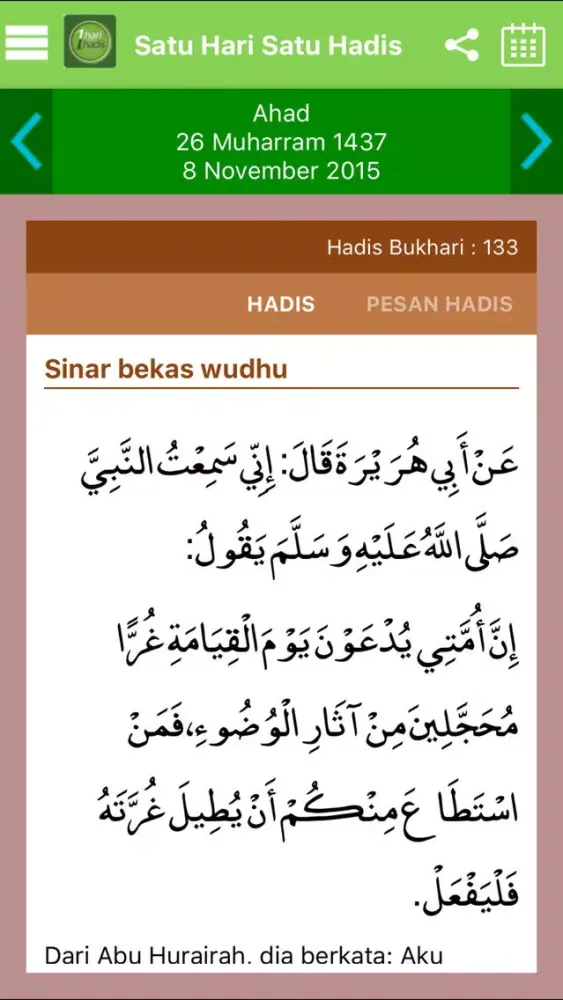 1hari
1hadis
Satu Hari Satu Hadis
Ahad
26 Muharram 1437
8 November 2015
Hadis Bukhari : 133
HADIS PESAN HADIS
Sinar bekas wudhu
عَنْ أَبِي هُرَيْرَةَ قَالَ: إِنِّي سَمِعْتُ النَّبِيَّ
صَلَّى اللَّهُ عَلَيْهِ وَسَلَّمَ يَقُولُ:
إِنَّ أُمَّتِي يُدْعَوْنَ يَوْمَ الْقِيَامَةِ غُرًّا
مُحَجَّلِينَ مِنْ آثَارِ الْوُضُوءِ، فَمَنْ
اسْتَطَاعَ مِنْكُمْ أَنْ يُطِيلَ غُرَّتَهُ
فَلْيَفْعَلْ.
Dari Abu Hurairah, dia berkata: Aku